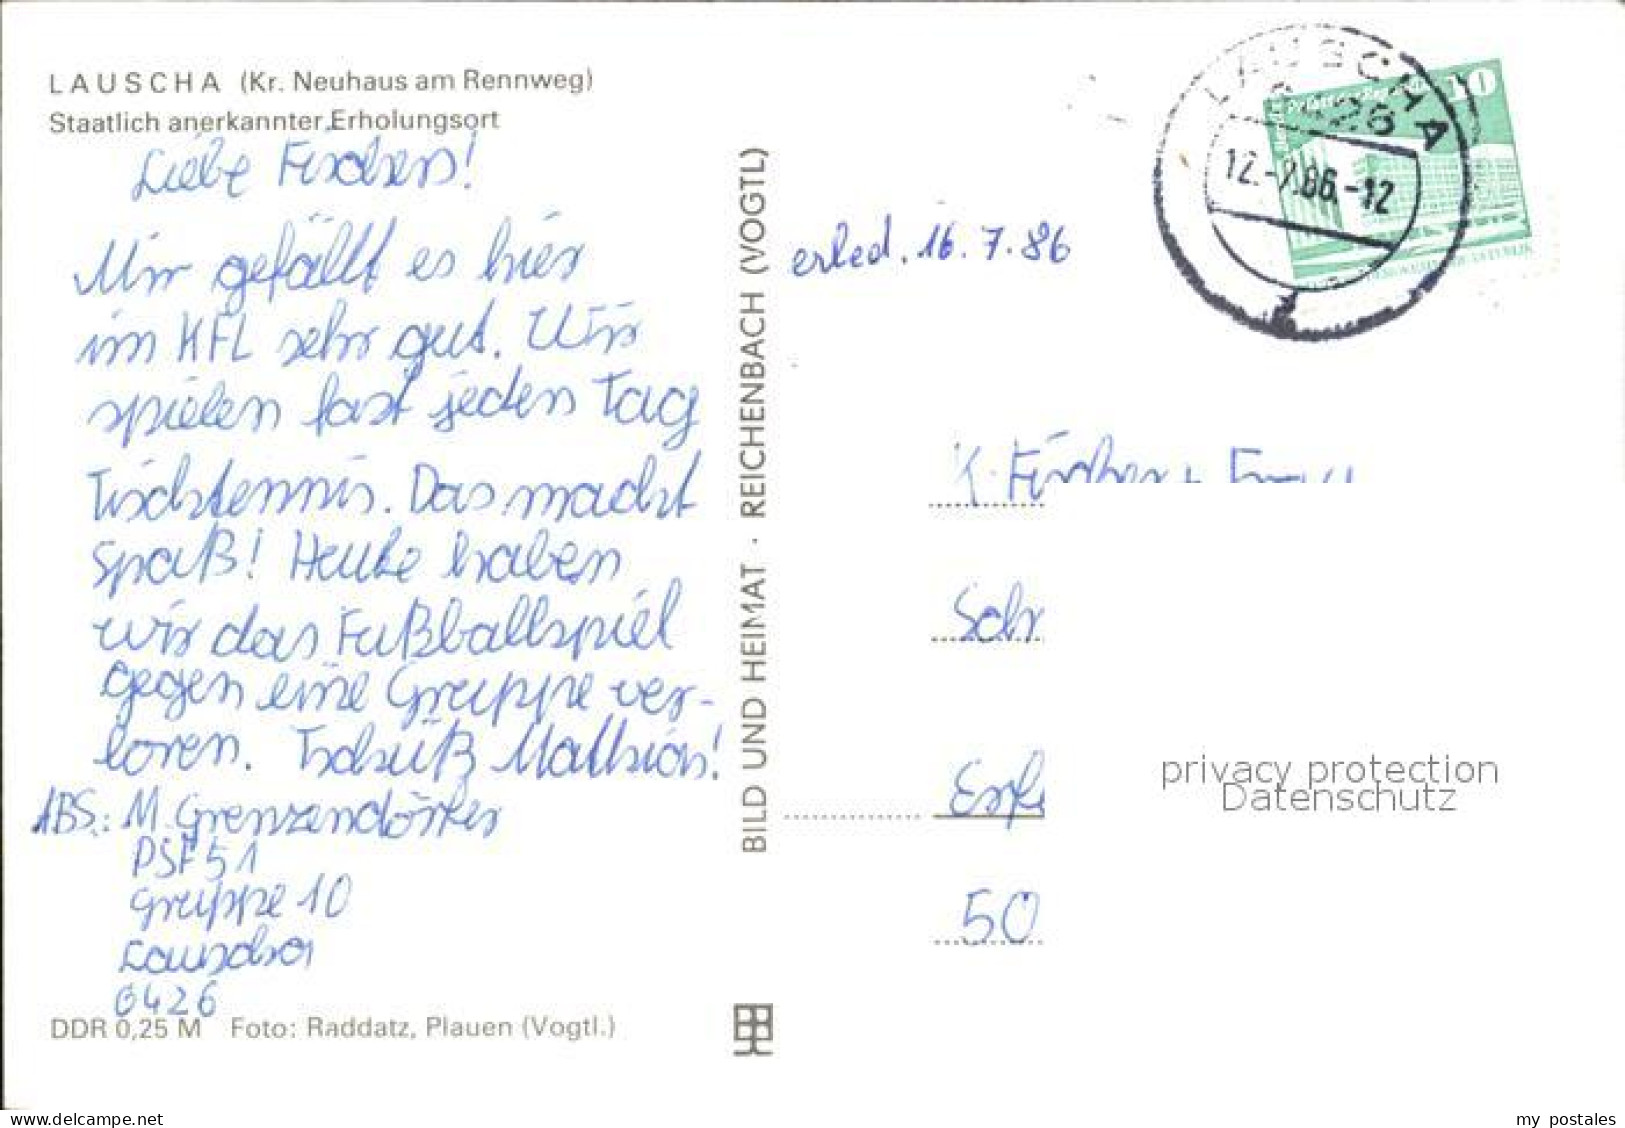 LAUSCHA (Kr. Neuhaus am Rennweg)
Staatlich anerkannter Erholungsort
Liebe Fischers!
Mir gefällt es hier
im KFL sehr gut. Wir
spielen fast jeden Tag
Tischtennis. Das macht
Spaß! Heute haben
wir das Fußballspiel
gegen eine Gruppe ver-
loren. Tschüß Mathias!
ABS.: M. Grenzendörfer
PSF 51
Gruppe 10
Lauscha
6426
DDR 0,25 M Foto: Raddatz, Plauen (Vogtl.)
BILD UND HEIMAT · REICHENBACH (VOGTL)
erled. 16.7.86
LAUSCHA
6426
12.-7.86.-12
10
K. Fischer
Sch
Erf
50
privacy protection
Datenschutz
delcampe.net
my_postales